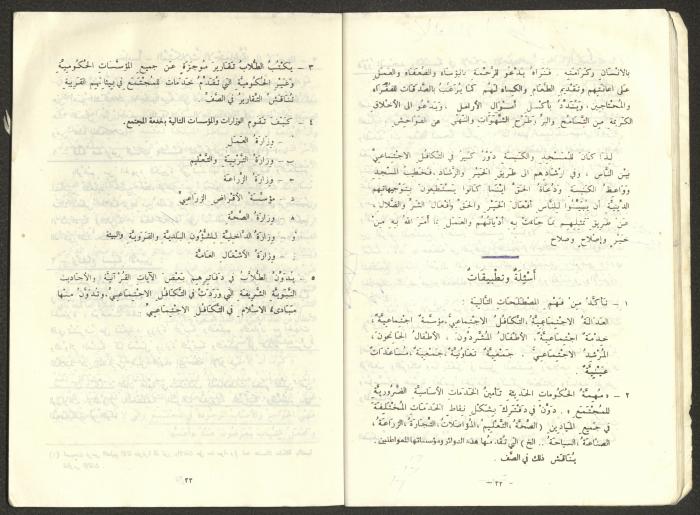 بالانسان وكرامته . فنراه يدعو للرحمة بالبؤساء والضعفاء والعمل
على اعانتهم وتقديم الطعام والكساء لهم كما يرغب بالصدقات للفقراء
والمحتاجين ، ويندد بأكل أموال الأرامل . ويدعو الى الأخلاق
الكريمة من التسامح والبر وطرح الشهوات والنهي عن الفواحش
لذا كان للمسجد والكنيسة دور كبير في التكافل الاجتماعي
بين الناس ، وفي ارشادهم الى طريق الخير والرشاد . فخطيب المسجد
وواعظ الكنيسة ودعاة الحق اينما كانوا يستطيعون بتوجيهاتهم
الدينية أن يبينوا للناس أفعال الخير والحق وأفعال الشر والضلال ،
عن طريق تمثيلهم بما جاءت به أديانهم والعمل بما أمر الله به من
خير وإصلاح وصلاح
أسئلة وتطبيقات
١ – تأكد من فهم المصطلحات التالية :
العدالة الاجتماعية ، التكافل الاجتماعي ، مؤسسة اجتماعية ،
خدمة اجتماعية ، الأطفال المتشردون ، الأطفال الجانحون ،
المرشد الاجتماعي ، جمعية تعاونية ، جمعية ، مساعدات
عينية .
٢ – « مهمة الحكومات الحديثة تأمين الخدمات الأساسية الضرورية
للمجتمع » . دون في دفترك بشكل نقاط الخدمات المختلفة
في جميع الميادين ( الصحة ، التعليم ، المواصلات ، التجارة ، الزراعة ،
الصناعة ، السياحة .. الخ ) التي تقدمها هذه الدوائر ومؤسساتها للمواطنين .
يناقش ذلك في الصف .
– ٢٢ –
٣ – يكتب الطلاب تقارير موجزة عن جميع المؤسسات الحكومية
وغير الحكومية التي تقدم خدمات للمجتمع في بيئاتهم القريبة
تناقش التقارير في الصف .
٤ – كيف تقوم الوزارات والمؤسسات التالية بخدمة المجتمع .
أ – وزارة العمل
ب – وزارة التربية والتعليم
ج – وزارة الزراعة
د – مؤسسة الاقراض الزراعي
ه – وزارة الصحة
و – وزارة الداخلية للشؤون البلدية والقروية والبيئة
ز – وزارة الأشغال العامة
٥ – يدون الطلاب في دفاترهم بعض الآيات القرآنية والأحاديث
النبوية الشريفة التي وردت في التكافل الاجتماعي . وتدون منها
مبادىء الاسلام في التكافل الاجتماعي .
٢٣